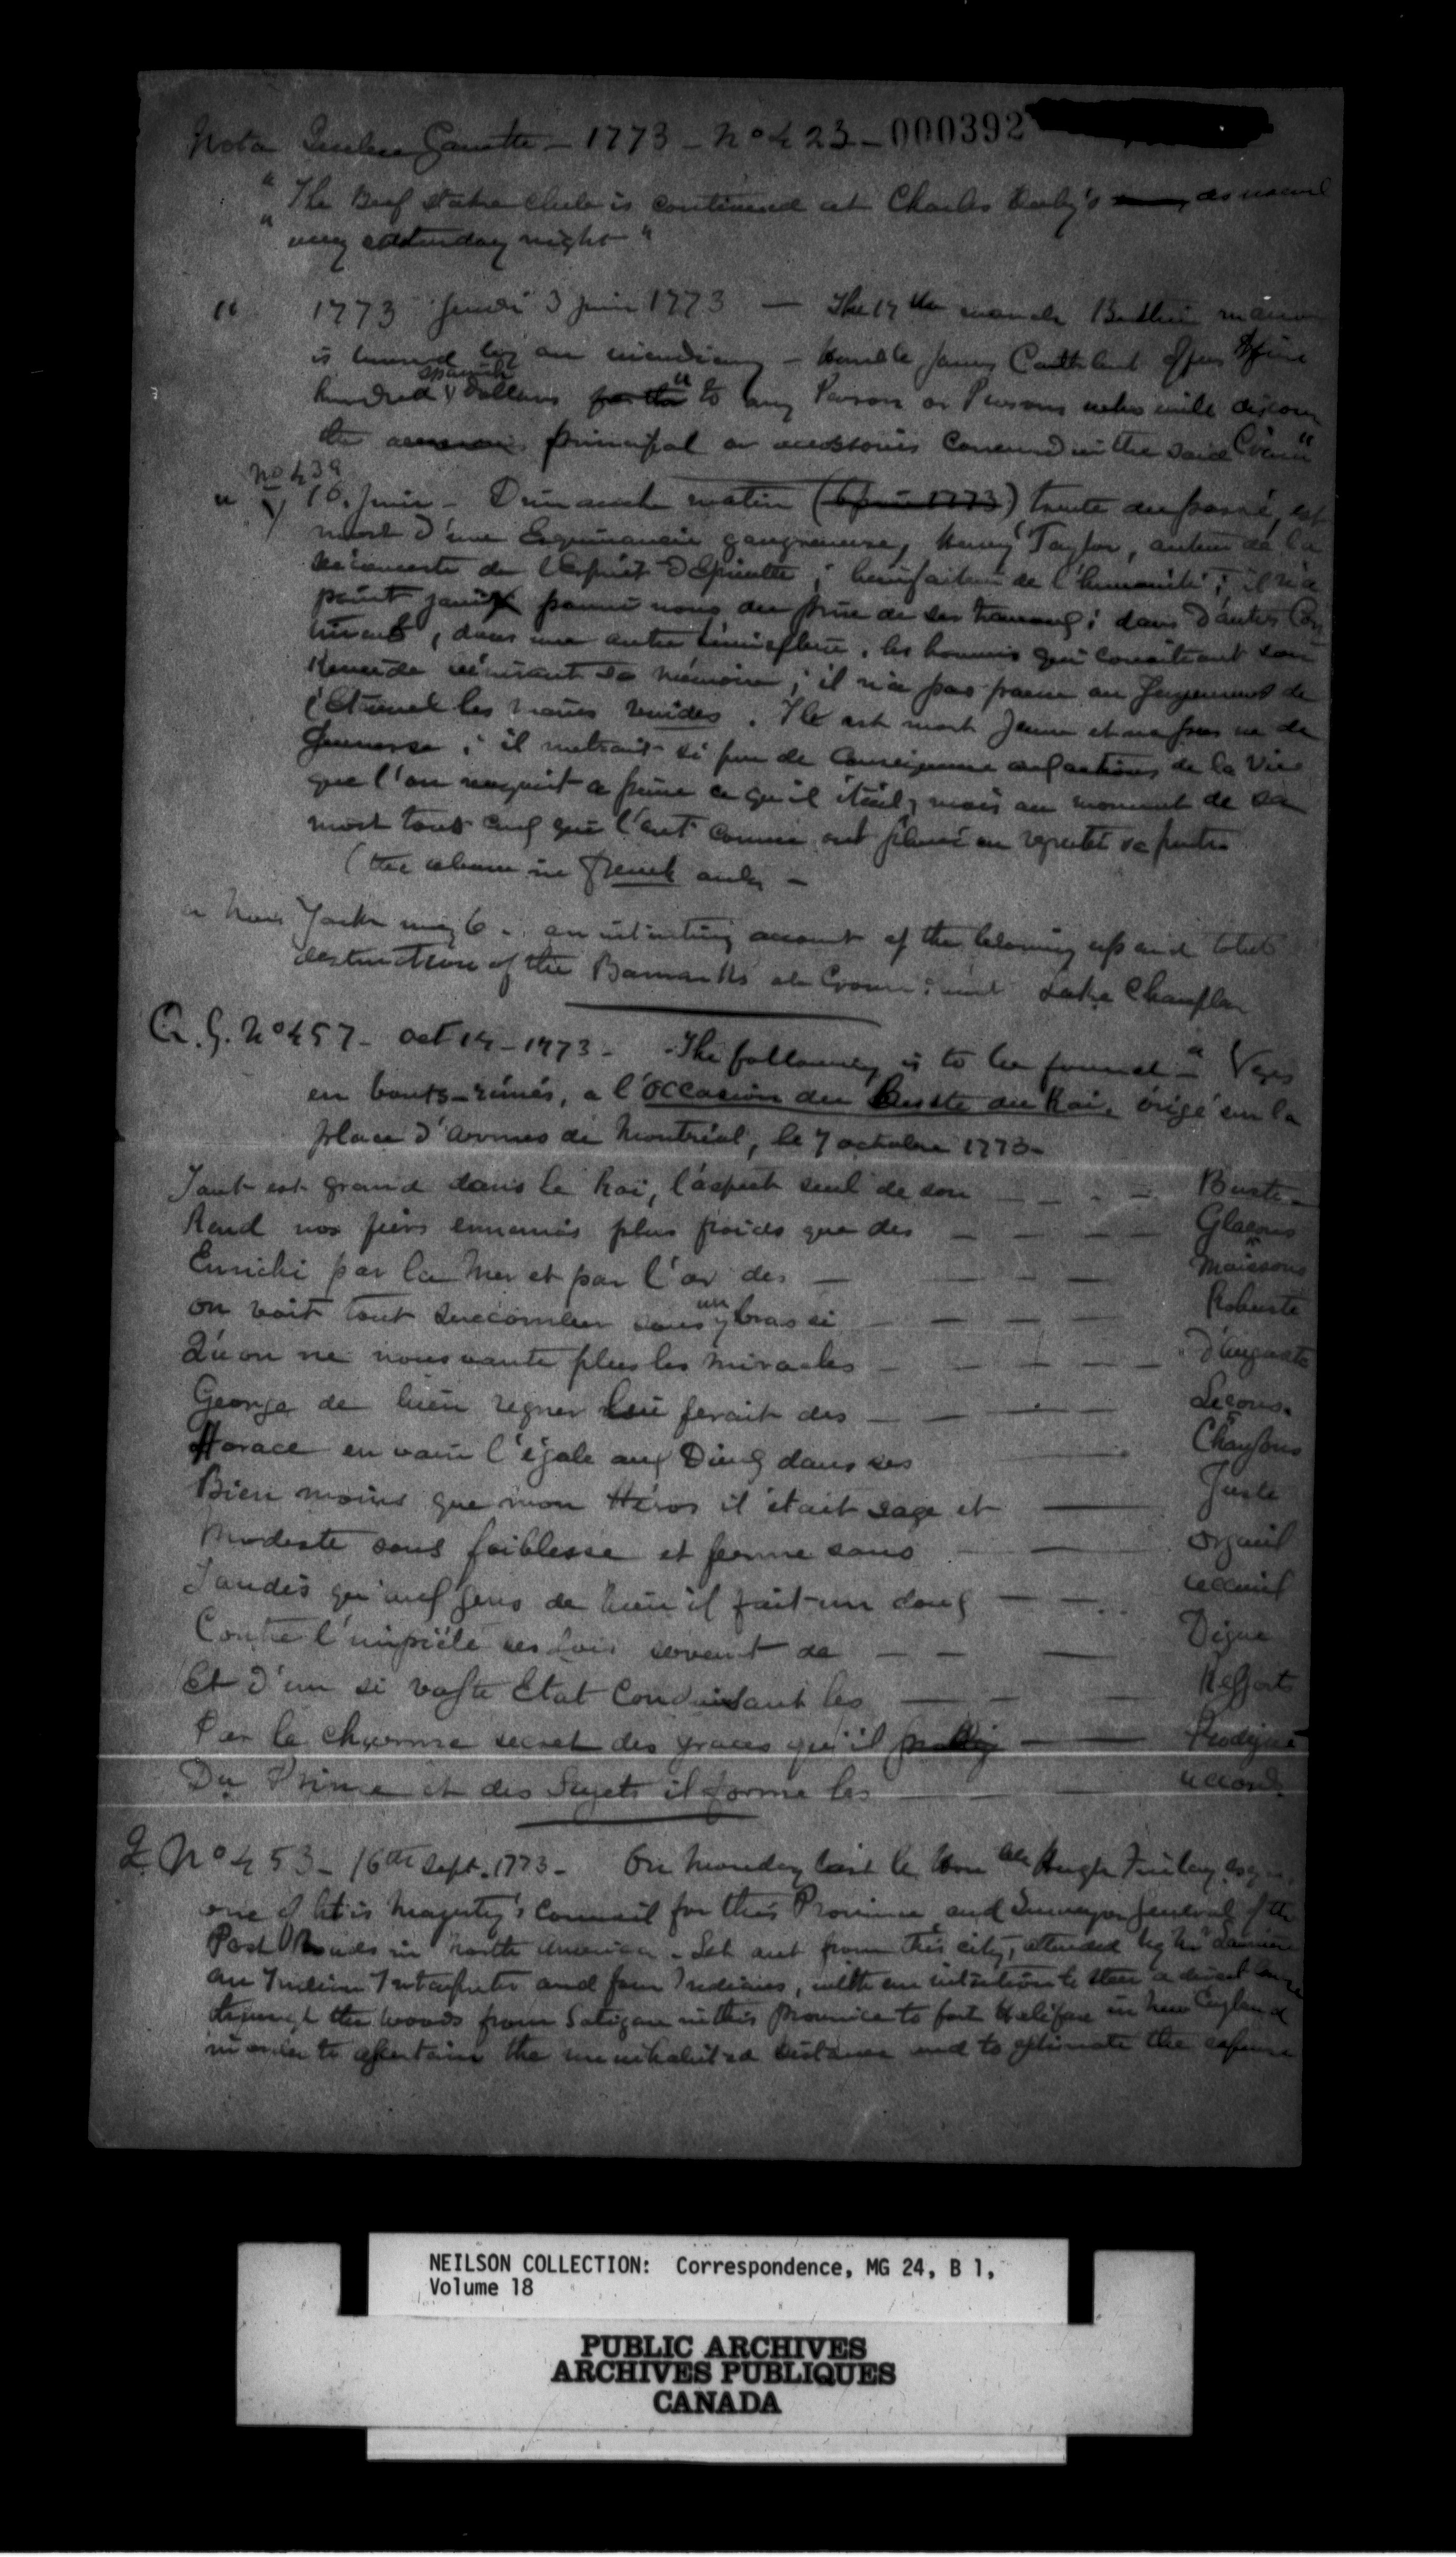 Nota Quebec Gazette - 1773 - No 423 - 000392
"The Beef Stake Club is continued at Charles Darby's as usual
" every Saturday night "
" 1773 Jeudi 3 Juin 1773 — The 17th Berthier manor
is burned by an incendiary - Honble James Cuthbert offers
hundred spanish Dollars "to any Person or Persons who will discover
the principal or accessories concerned in the said Crime"
No 439
" 16 Juin - Dimanche matin (6 Juin 1773) trente du passé, est
mort d'une Esquinancie gangreneuse, Henry Taylor, auteur de la
découverte de l'Esprit d'Epinette ; bienfaiteur de l'humanité ; il n'a
point joui parmi nous du prix de ses travaux ; dans d'autres
, dans une autre hémisphère, les hommes qui connaitront son
Remède béniront sa mémoire ; il n'a pas paru au Jugement de
l'Eternel les mains vuides. Il est mort Jeune et
Jeunesse ; il mettait si peu de aux actions de la Vie
que l'on a peine ce qu'il était, mais au moment de sa
mort tous ceux qui l'ont connu ont pleuré en sa perte
(the above in French only -
" New York may 6 . an interesting account of the blowing up and total
destruction of the Barracks at Crown Point Lake Champlain
Q. G. No 457 - Oct 14 - 1773 - The following is to be found - "Vers
en bouts-rimés, a l'occasion du Buste du Roi, érigé sur la
place d'armes de Montréal, le 7 octobre 1773 -
Tout est grand dans le Roi, l'aspect seul de son — Buste
Rend nos fiers ennemis plus froids que des — Glacons
Enrichi par la Mer et par l'or des — Moissons
on voit tout succomber sous un bras si — Robuste
Qu'on ne nous vante plus les miracles — d'Auguste
George de bien regner lui ferait des — Leçons.
Horace en vain l'égale aux Dieux dans ses — Chansons
Bien moins que mon Héros il était sage et — Juste
Modeste sans foiblesse et ferme sans — orgueil
Tandis qu'aux gens de bien il fait un doux — accueil
Contre l'impiété ses lois servent de — Digue
Et d'un si vaste Etat Conduisant les — Ressorts
Par le charme secret des graces qu'il — Prodigue
Du Prince et des Sujets il forme les — accords.
No 453 - 16th Sept. 1773 - On Monday last Honble Hugh Finlay Esqr.
one of His Majesty's Council for this Province and Surveyor General of the
Post Roads in North America - Set out from this city, attended by Mr
an Indian Interpreter and four Indians, with an intention to steer a direct
through the woods from Satigan in this province to fort Halifax in New England
in order to assertain the uninhabited distance and to estimate the expense
NEILSON COLLECTION: Correspondence, MG 24, B 1,
Volume 18
PUBLIC ARCHIVES
ARCHIVES PUBLIQUES
CANADA